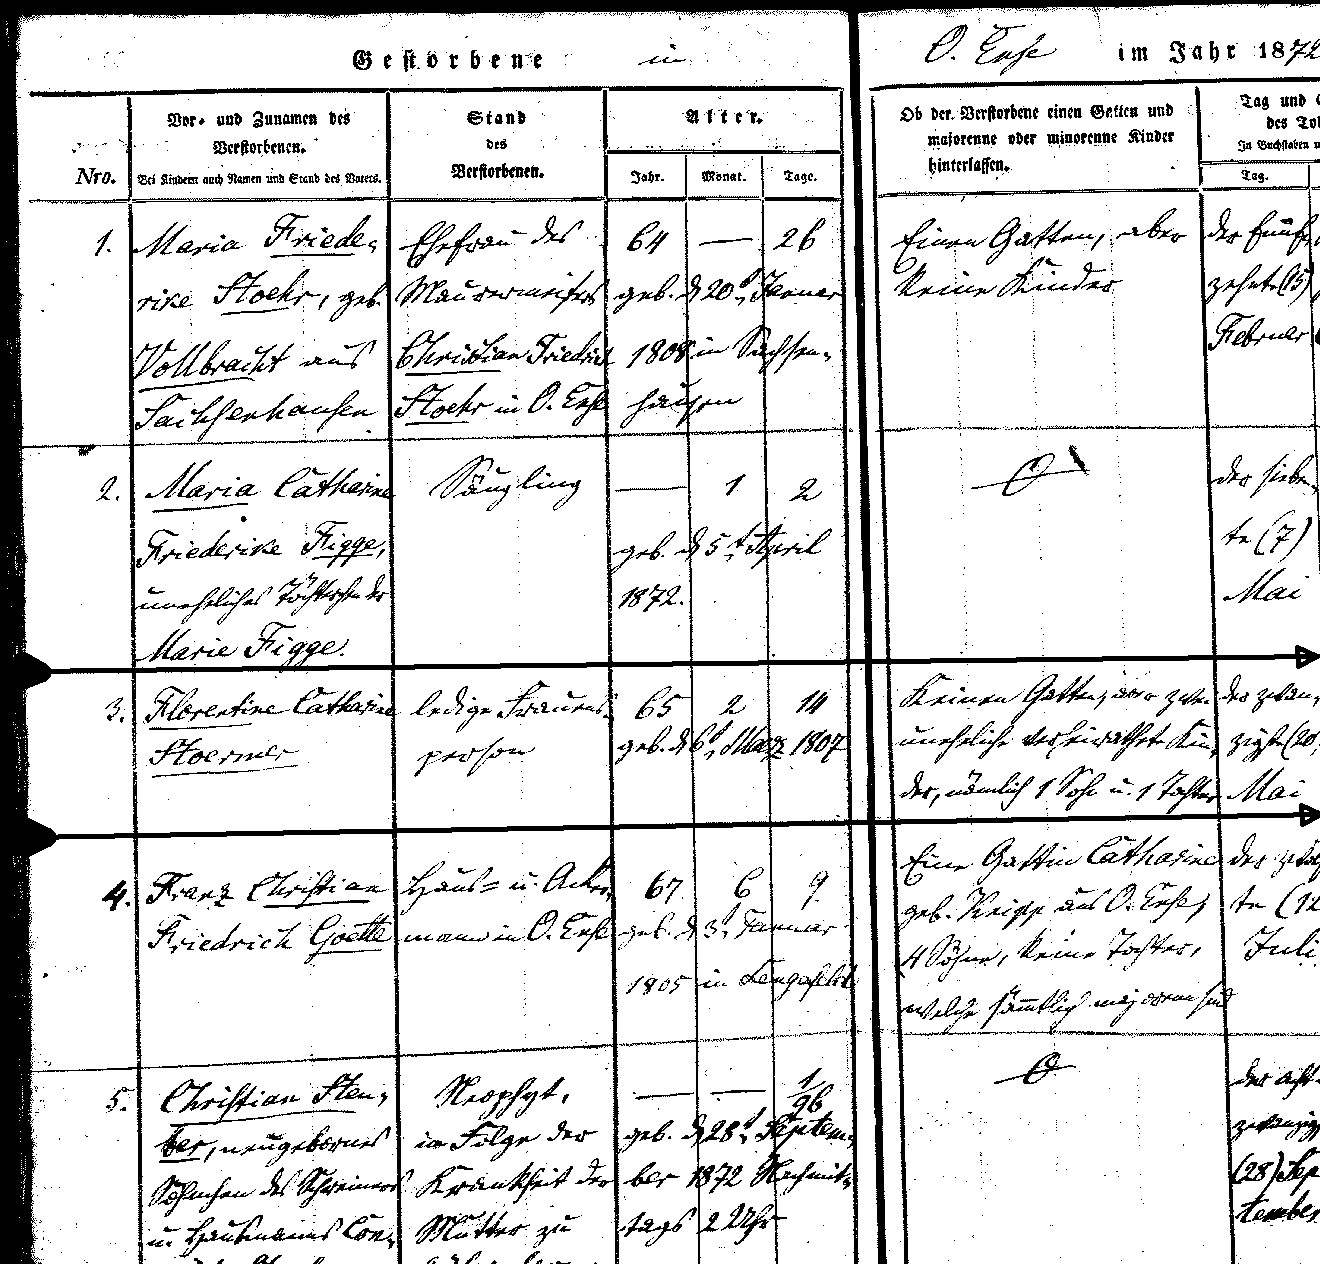 Gestorbene in O. Ense im Jahr 1872
Nro.
Vor- und Zunamen des
Verstorbenen.
Bei Kindern auch Namen und Stand des Vaters.
Stand
des
Verstorbenen.
Alter.
Jahr. Monat. Tage.
Ob der Verstorbene einen Gatten und
majorenne oder minorenne Kinder
hinterlassen.
Tag und
des
In Buchstaben
Tag.
1.
Maria Friede-
rike Stoehr, geb.
Vollbracht aus
Sachsenhausen
Ehefrau des
Maurermeisters
Christian Friedrich
Stoehr in O. Ense
64 — 26
geb. d. 20t. Januar
1808 in Sachsen-
hausen
Einen Gatten, aber
keine Kinder
der fünf-
zehnte (15)
Februar
2.
Maria Catharine
Friederike Figge,
uneheliches Töchterchen der
Marie Figge.
Säugling
— 1 2
geb. d. 5t. April
1872.
der sieben-
te (7)
Mai
3.
Florentine Catharine
Stoermer
ledige Frauens-
person
65 2 14
geb. d. 6t. März 1807
Keinen Gatten, aber zwei
uneheliche verheirathete Kin-
der, nämlich 1 Sohn u. 1 Tochter
der zwan-
zigste (20)
Mai
4.
Franz Christian
Friedrich Goette
Haus- u. Acker-
mann in O. Ense
67 6 9
geb. d. 3t. Januar
1805 in Lengefeld
Eine Gattin Catharine
geb. Knipp aus O. Ense,
4 Söhne, keine Tochter,
welche sämmtlich majorenn sind
der zwölf-
te (12
Juli
5.
Christian Sten-
ber, neugebornes
Söhnchen des Schreiners
u. Hausmanns Con-
Neophyt.
in Folge der
Krankheit der
Mutter zu
— — 1/96
geb. d. 28t. Septem-
ber 1872 Nachmit-
tags 2 Uhr
der acht-
zwanzig
(28) Sep
tember